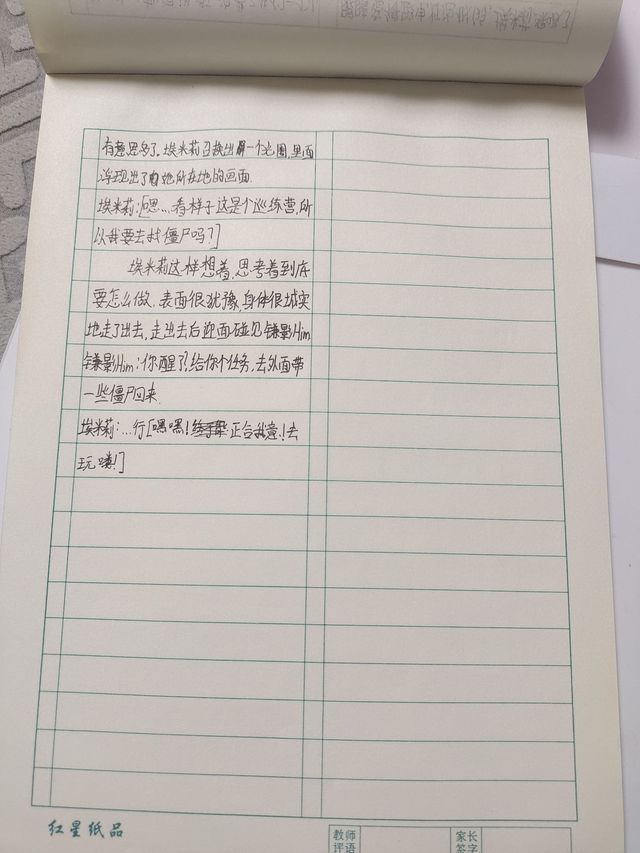 有意思多了。埃米莉召换出一个光圈,里面
浮现出了她所在地的画面
埃米莉:[嗯…看样子这是个巡练营,所
以我要去找僵尸吗?]
埃米莉这样想着,思考着到底
要怎么做.表面很犹豫,身体很诚实
地走了出去,走出去后迎面碰见镰影Him
镰影Him:你醒了?给你个任务,去外面带
一些僵尸回来.
埃米莉:…行[嘿嘿!正合我意!去
玩喽!]
红星纸品
教师
评语
家长
签字